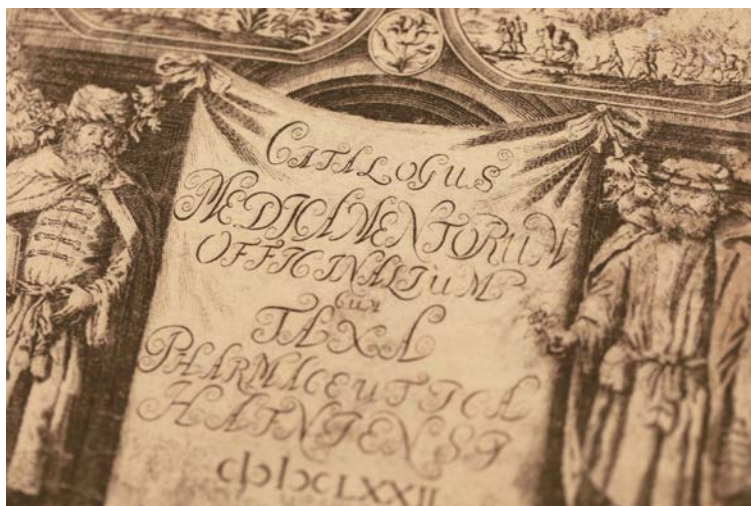 CATALOGUS
MEDICAMENTORUM
OFFICINALIUM
CUM
TAXA
PHARMACEUTICA
HAFNIENSI
cIↃ IↃCLXXII